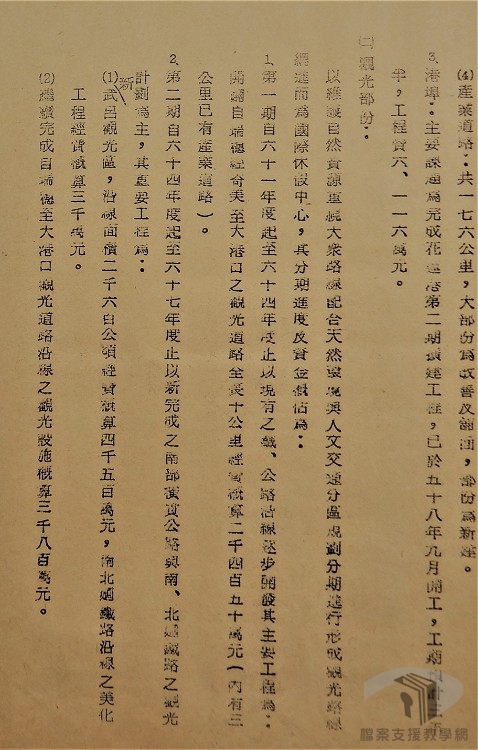 (4)產業道路：共一七六公里，大部份為改善及鋪面，部份為新建。
3.港埠：主要課題為完成花蓮港第二期擴建工程，已於五十八年九月開工，工期預計三年
半，工程費六、一一六萬元。
㈡觀光部份：
以維護自然資源重視大眾路線配合天然環境與人文交通分區規劃分期進行形成觀光路線
網進而為國際休假中心，其分期進度及資金概估為：
1.第一期自六十一年度起至六十四年度止以現有之鐵、公路沿線逐步開發其主要工程為：
開闢自瑞穗經奇美至大港口之觀光道路全長十公里經費概算二千四百五十萬元（內有三
公里已有產業道路）。
2.第二期自六十四年度起至六十七年度止以新完成之南部橫貫公路與南、北迴鐵路之觀光
計劃為主，其重要工程為：
(1)新武呂觀光區，沿線面積二千六百公頃經費概算四千五百萬元，南北迴鐵路沿線之美化
工程經費概算三千萬元。
(2)繼續完成自瑞穗至大港口觀光道路沿線之觀光設施概算三千八百萬元。
檔案支援教學網